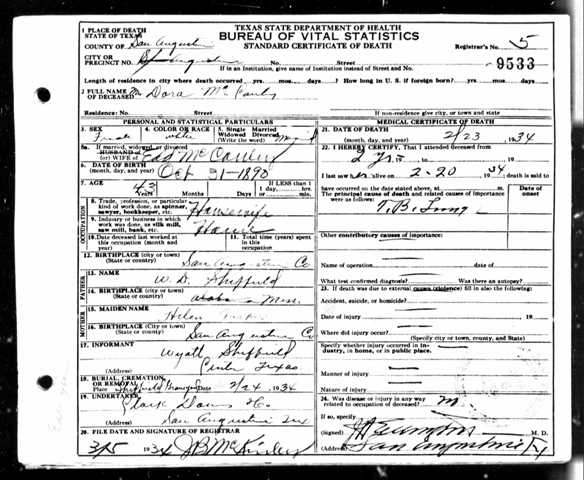 1 PLACE OF DEATH
STATE OF TEXAS
COUNTY OF San Augustine
CITY OR PRECINCT NO. San Augustine No. Street
If in an Institution, give name of Institution instead of Street and No.
TEXAS STATE DEPARTMENT OF HEALTH
BUREAU OF VITAL STATISTICS
STANDARD CERTIFICATE OF DEATH
Registrar's No. 5
9533
Length of residence in city where death occurred yrs. mos. days? How long in U. S. if foreign born? yrs. mos. days
2 FULL NAME OF DECEASED Mrs Dora McCauley
Residence: No. Street If non-residence give city, or town and state
PERSONAL AND STATISTICAL PARTICULARS
3. SEX
Female
4. COLOR OR RACE
white
5. Single Married Widowed Divorced (Write the word)
5a. If married, widowed, or divorced
HUSBAND of
(or) WIFE of Edd McCauley
6. DATE OF BIRTH
(month, day, and year) Oct 31-1890
7. AGE 43 Years Months Days If LESS than 1
OCCUPATION
8. Trade, profession, or particular kind of work done, as spinner, sawyer, bookkeeper, etc. Housewife
9. Industry or business in which work was done, as silk mill, saw mill, bank, etc. Home
10. Date deceased last worked at this occupation (month and year)
11. Total time (years) spent in this occupation
12. BIRTHPLACE (city or town) San Augustine Co
(State or country)
FATHER
13. NAME
W. D. Sheffield
14. BIRTHPLACE (city or town)
(State or country) Miss.
MOTHER
15. MAIDEN NAME
Helen
16. BIRTHPLACE (city or town)
(State or country) San Augustine Co
17. INFORMANT
Wyatt Sheffield
(Address) Center Texas
18. BURIAL, CREMATION, OR REMOVAL
Place Sheffield Date 2/24 1934
19. UNDERTAKER
Clark Downs Co.
(Address) San Augustine Tex
20. FILE DATE AND SIGNATURE OF REGISTRAR
3/5 1934 J B McKinley
MEDICAL CERTIFICATE OF DEATH
21. DATE OF DEATH
(month, day, and year) 2/23 1934
22. I HEREBY CERTIFY, That I attended deceased from
2 Yrs 19 to 19
I last saw her alive on 2-20 1934 death is said to
have occurred on the date stated above, at m.
The principal cause of death and related causes of importance were as follows:
Date of onset
T. B. Lung
Other contributory causes of importance:
Name of operation Date of
What test confirmed diagnosis? Was there an autopsy?
23. If death was due to external causes (violence) fill in also the following:
Accident, suicide, or homicide?
Date of injury 19
Where did injury occur?
(Specify city or town, county, and State)
Specify whether injury occurred in industry, in home, or in public place.
Manner of injury
Nature of injury
24. Was disease or injury in any way related to occupation of deceased?
If so, specify
(Signed) M. D.
(Address) San Augustine Tx